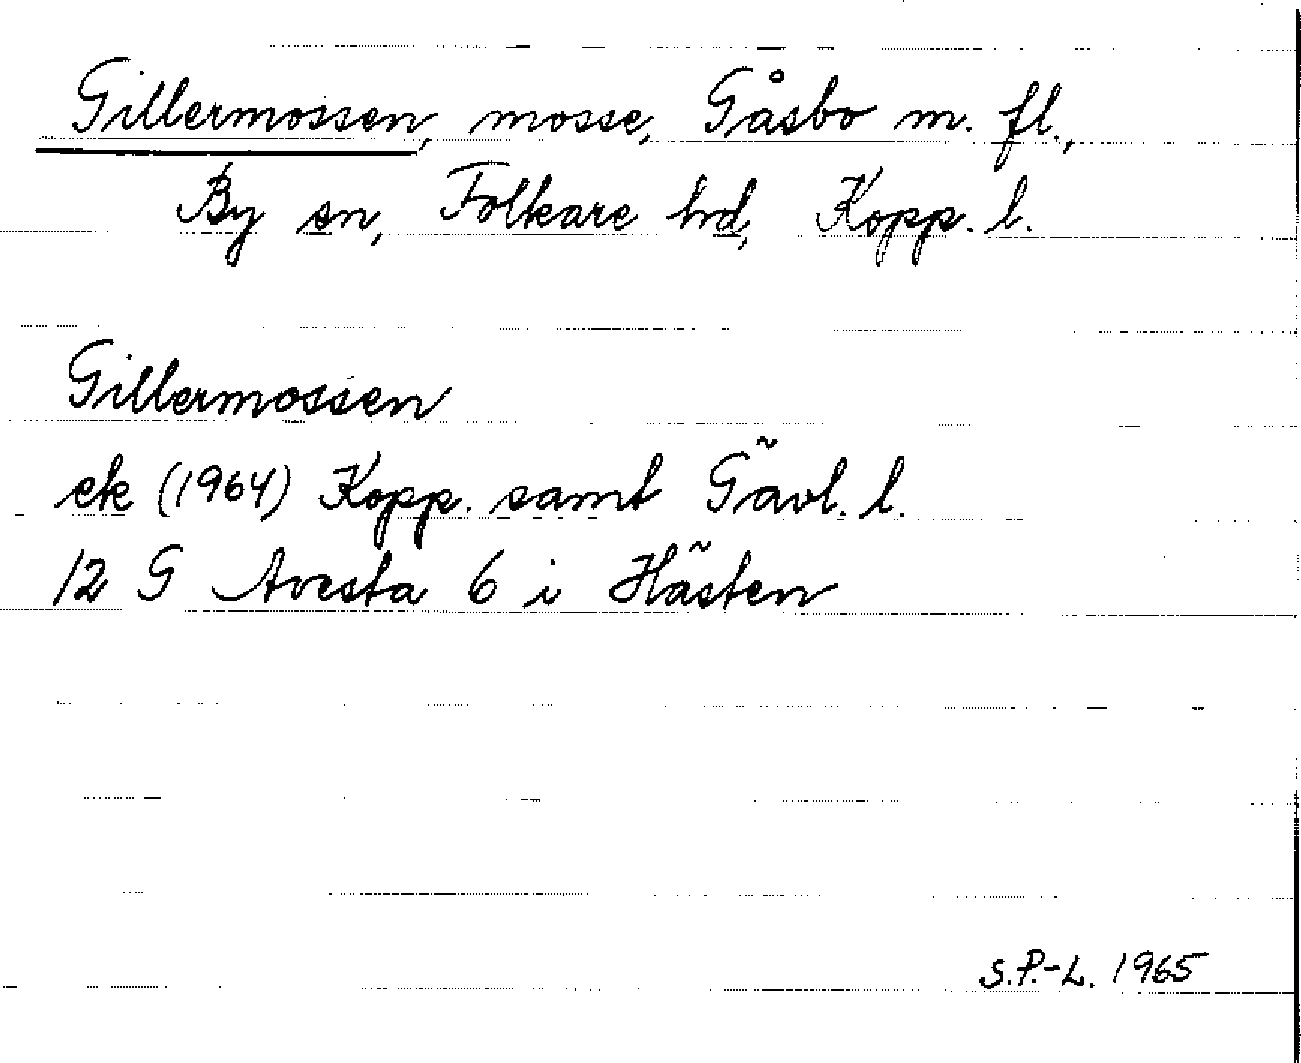 Gillermossen, mosse, Gåsbo m. fl.,
By sn, Folkare hd, Kopp. l.
Gillermossen
ek (1964) Kopp. samt Gävl. l.
12 G Avesta 6 i Hästen
S.P.-L. 1965